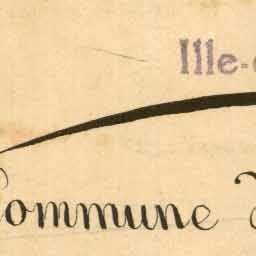 Ille-
Commune